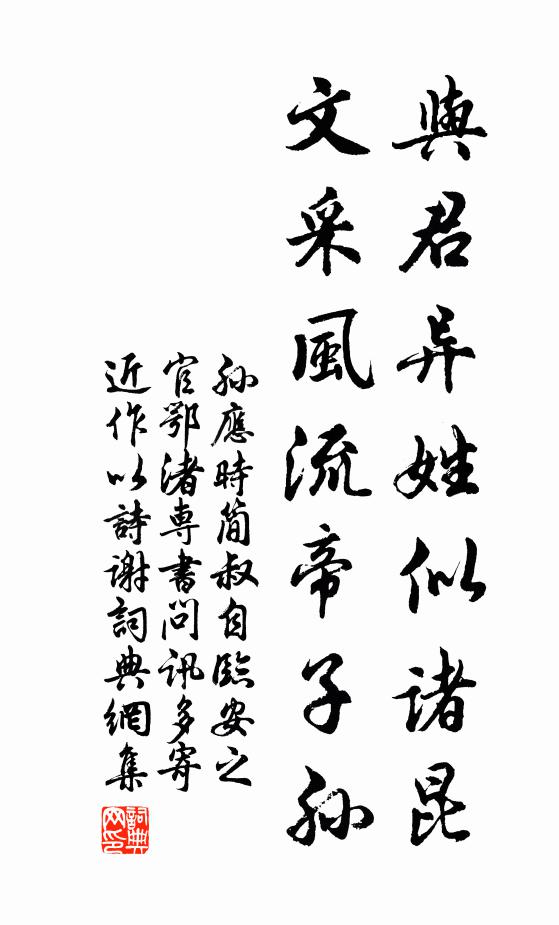 與君异姓似諸昆
文采風流帝子孫
孫應時简叔自臨安之
官鄂渚專書問訊多寄
近作以詩謝詞典網集
詞典网印